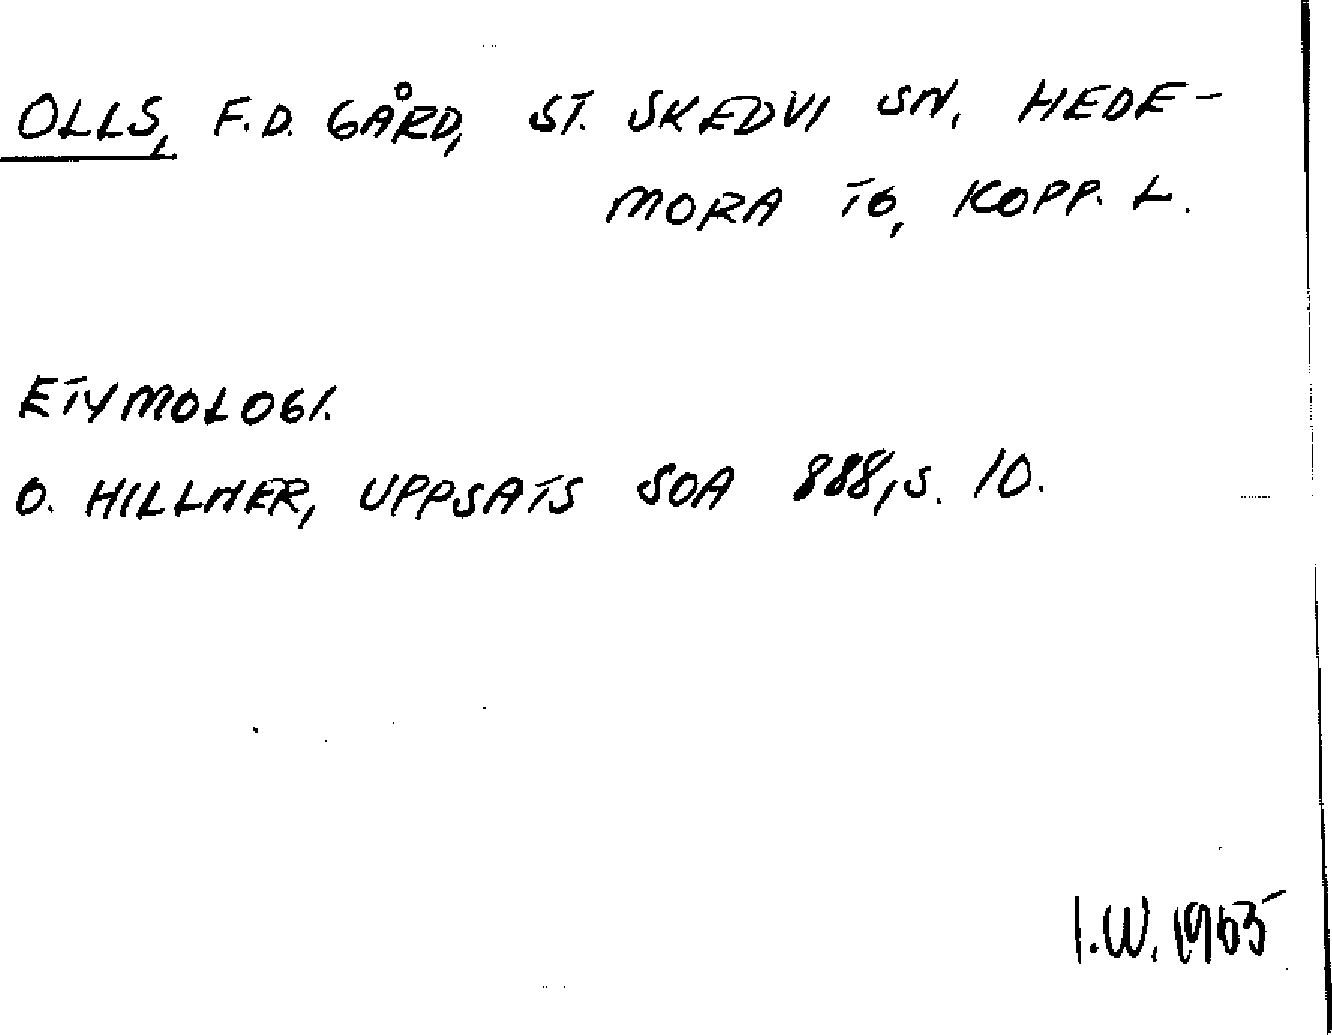 OLLS, F.D. GÅRD, ST. SKEDVI SN, HEDE-
MORA TG, KOPP. L.
ETYMOLOGI.
O. HILLNER, UPPSATS SOA 888, S. 10.
I.W. 1965